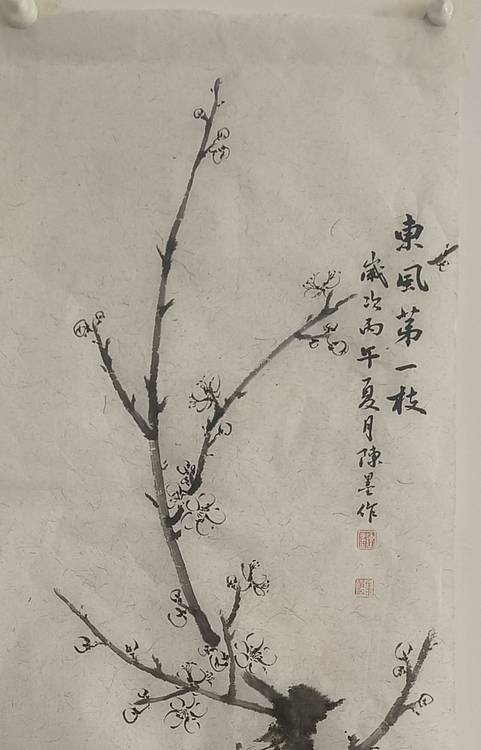 東風第一枝
歲次丙午夏月陳墨作